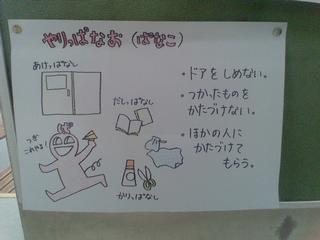 やりっぱなお（ぱなこ）
あけっぱなし
だしっぱなし
かりっぱなし
・ドアを しめない。
・つかったものを
かたづけない。
・ほかの人に
かたづけて
もらう。
ぱ